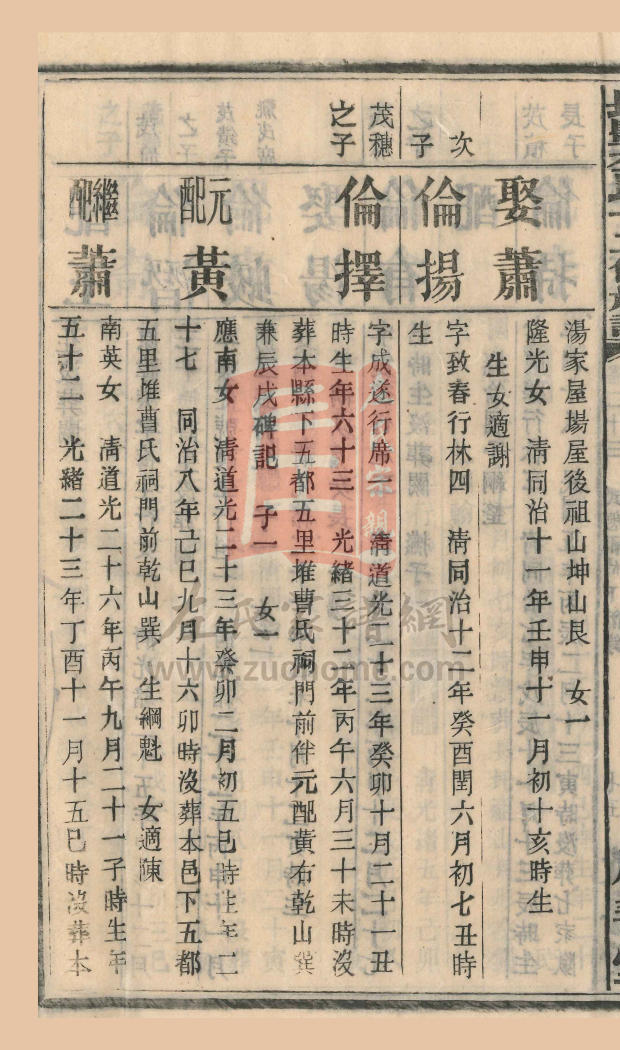 湯家屋場屋後祖山坤山艮　女一
娶蕭
隆光女　淸同治十一年壬申十一月初十亥時生
生女適謝
次子
倫揚
字致春行林四　淸同治十二年癸酉閏六月初七丑時
生
茂穗之子
倫擇
字成遂行席一　淸道光二十三年癸卯十月二十一丑
時生年六十三　光緒三十二年丙午六月三十未時沒
葬本縣下五都五里堆曹氏祠門前伴元配黃右乾山巽
兼辰戌碑記　子一　女一
元配黃
應南女　淸道光二十三年癸卯二月初五巳時生年二
十七　同治八年己巳九月十六卯時沒葬本邑下五都
五里堆曹氏祠門前乾山巽　生綱魁　女適陳
繼配蕭
南英女　淸道光二十六年丙午九月二十一子時生年
五十二　光緒二十三年丁酉十一月十五巳時沒葬本
左氏家譜網
www.zuohome.com